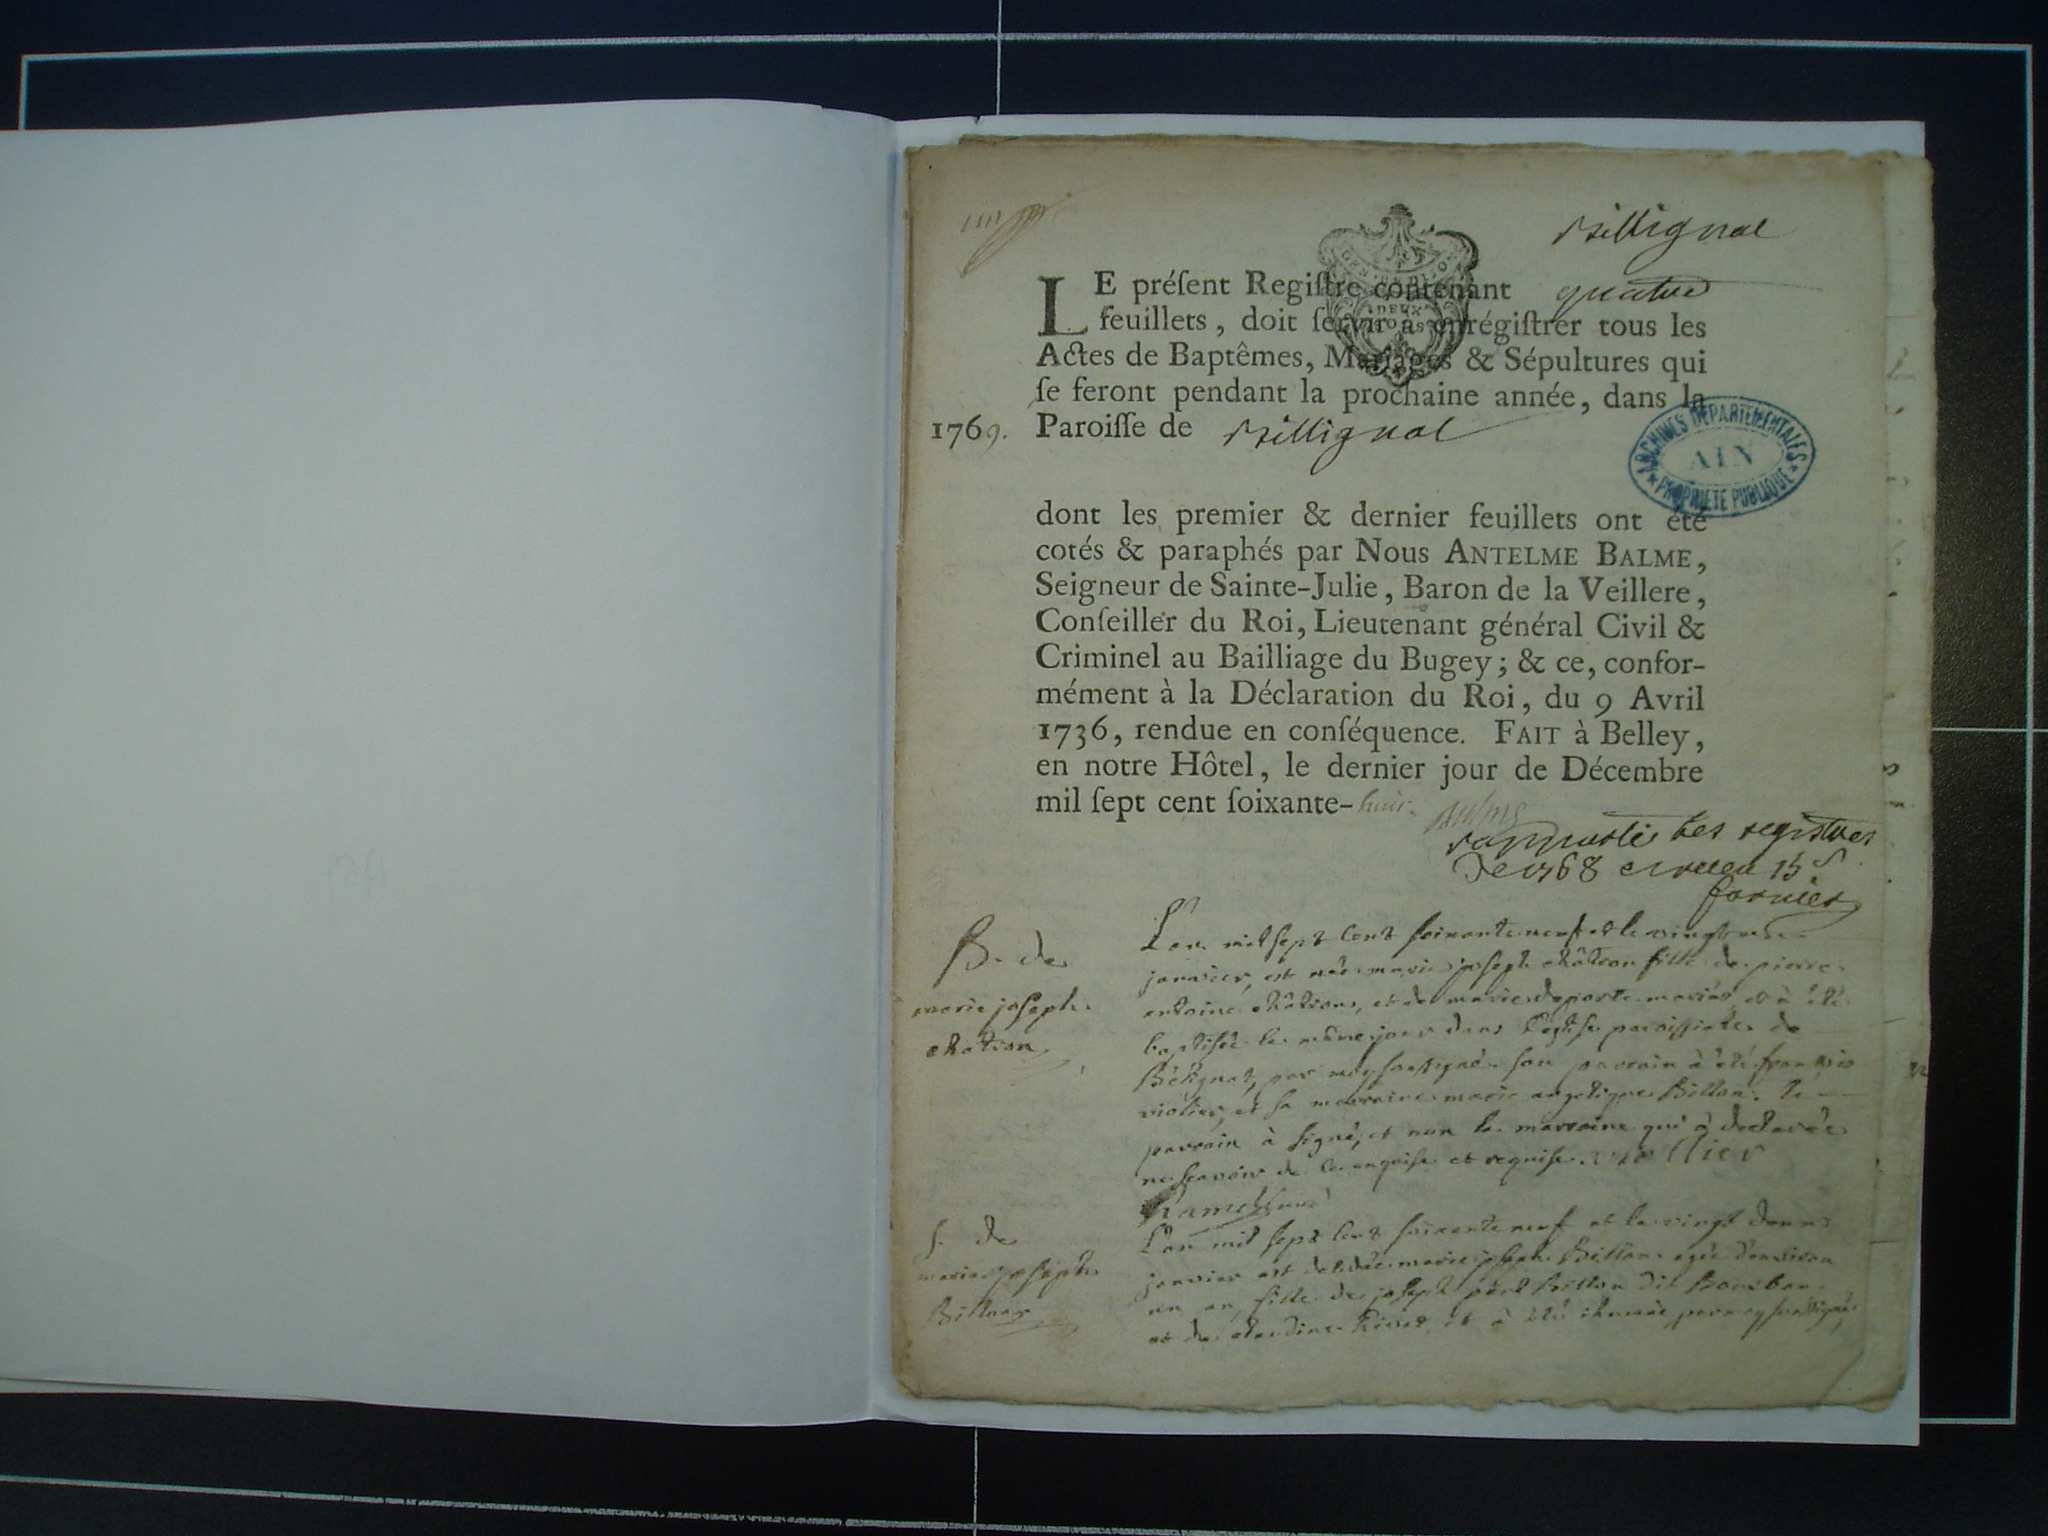 Billignal
LE préſent Regiſtre contenant quatre
feuillets, doit ſervir à enrégiſtrer tous les
Actes de Baptêmes, Mariages & Sépultures qui
ſe feront pendant la prochaine année, dans la
1769. Paroiſſe de Billignal
ARCHIVES DÉPARTEMENTALES
AIN
PROPRIÉTÉ PUBLIQUE
dont les premier & dernier feuillets ont été
cotés & paraphés par Nous ANTELME BALME,
Seigneur de Sainte-Julie, Baron de la Veillere,
Conſeiller du Roi, Lieutenant général Civil &
Criminel au Bailliage du Bugey; & ce, confor-
mément à la Déclaration du Roi, du 9 Avril
1736, rendue en conſéquence. FAIT à Belley,
en notre Hôtel, le dernier jour de Décembre
mil ſept cent ſoixante-huit. Balme
rapporté les registres
De 1768
B. de
marie joseph
châtron
L'an mil sept cent soixante neuf et le vingt
janvier, est née marie joseph châtron fille de pierre
antoine châtron, et de marie deporte mariés et à été
baptisée le même jour dans l'église paroissiale de
Bélignat, par moy soussigné. son parrain à été françois
violier, et sa marraine marie angelique Billon. le
parrain à signé, et non la marraine qui à declarée
ne scavoir de ce enquise et requise. viollier
S. de
marie joseph
Billon
L'an mil sept cent soixante neuf et le vingt deux
janvier est decedée marie joseph Billon agée d'environ
un an, fille de joseph Billon dit Bourbon
et de claudine et à été inhumée par moy soussigné